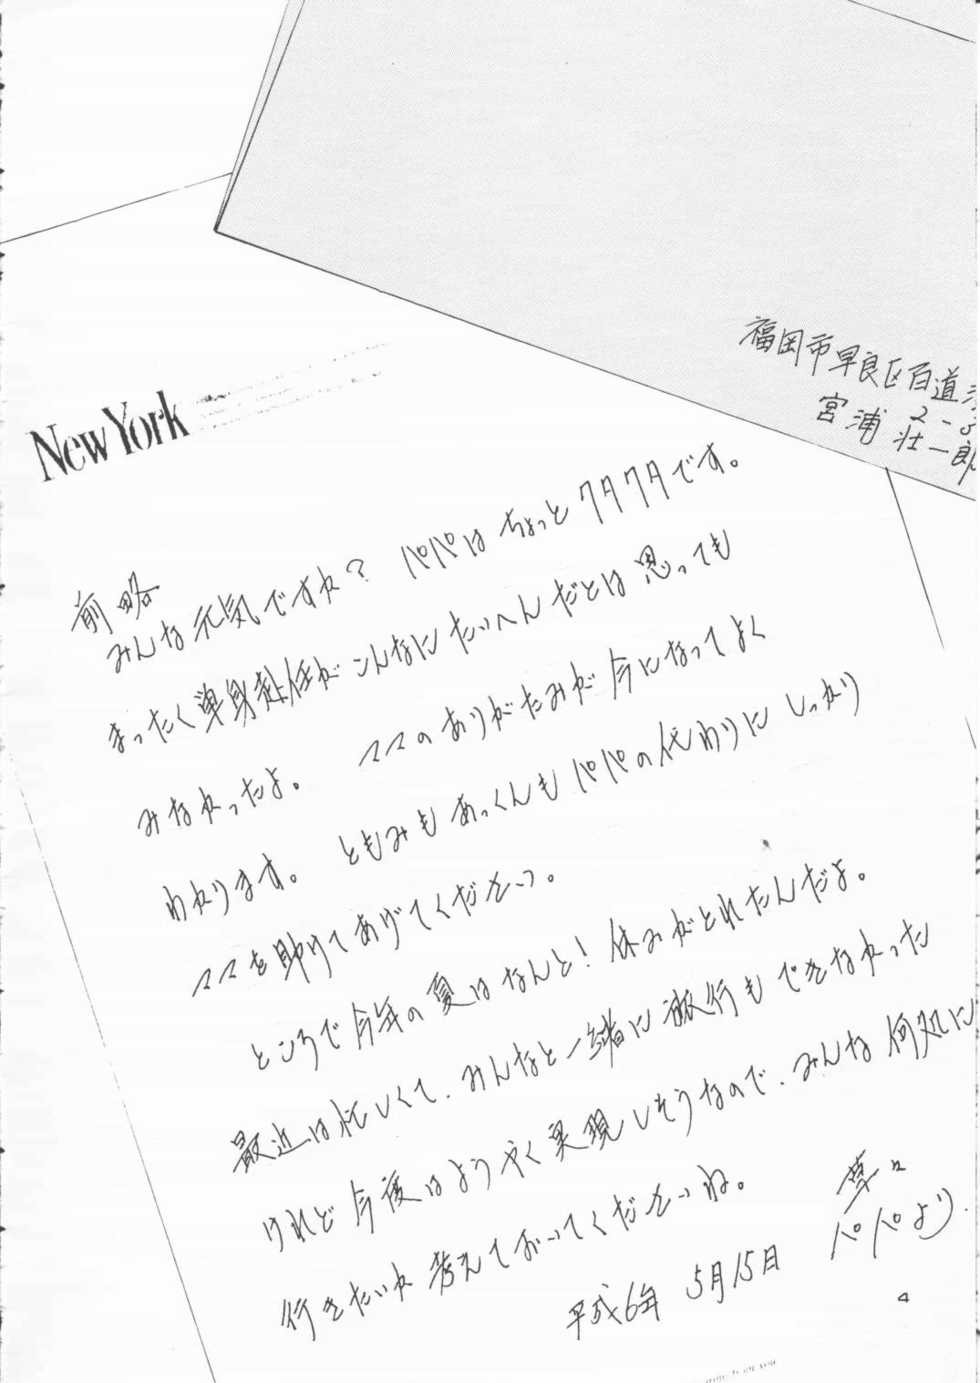 福岡市早良区百道
2-5
宮浦 壮一郎
New York
前略
みんな元気ですか? パパはちょっと クタクタです。
まったく単身赴任がこんなにたいへんだとは思っても
みなかったよ。 ママのありがたみが今になってよく
わかります。 ともみもあっくんもパパの代わりにしっかり
ママを助けてあげてください。
ところで今年の夏はなんと!休みがとれたんだよ。
最近は忙しくて、みんなと一緒に旅行もできなかった
けれど今度はようやく実現しそうなので、みんな何処に
行きたいか考えておいてくださいね。
草々
パパより.
平成6年 5月15日
4